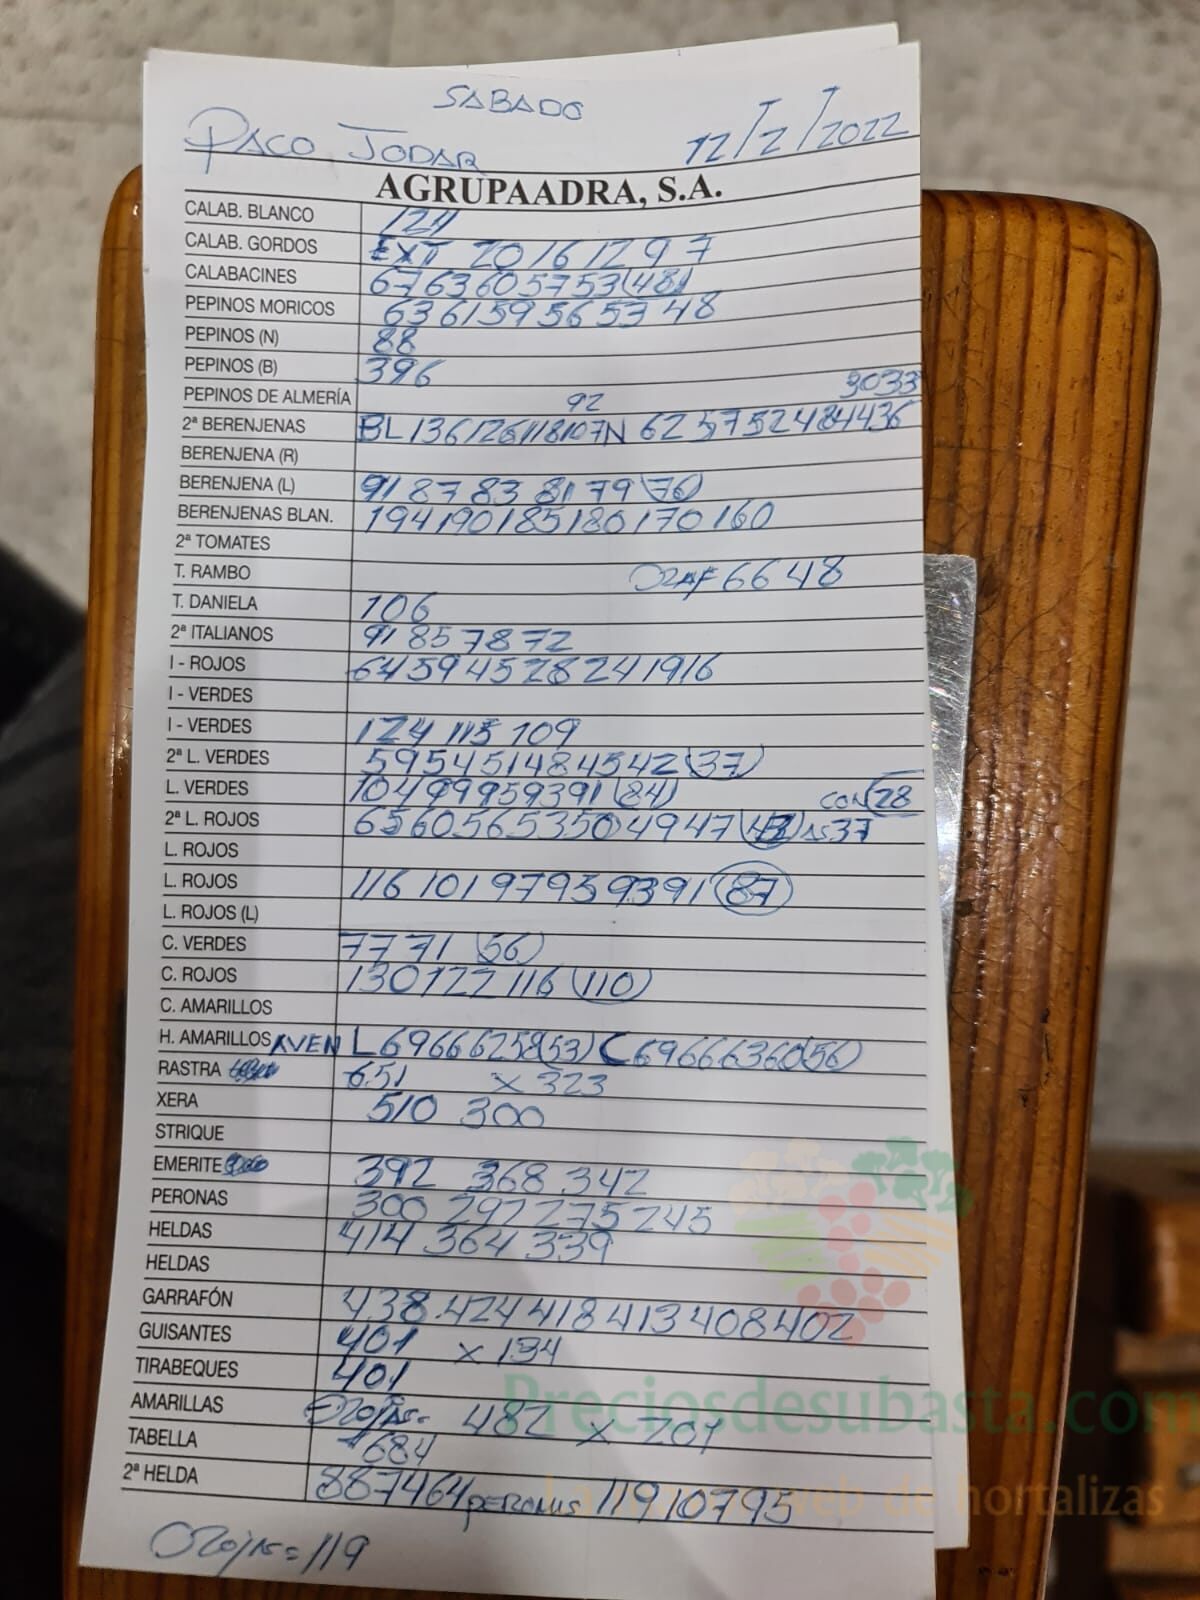 SABADO
PACO JODAR 12/2/2022
AGRUPAADRA, S.A.
CALAB. BLANCO 124
CALAB. GORDOS EXT 20 16 12 9 7
CALABACINES 67 63 60 57 53 (48)
PEPINOS MORICOS 63 61 59 56 53 48
PEPINOS (N) 88
PEPINOS (B) 396
PEPINOS DE ALMERÍA 92 3033
2ª BERENJENAS BL 136 126 118 107 N 62 57 52 48 44 36
BERENJENA (R)
BERENJENA (L) 91 87 83 81 79 (76)
BERENJENAS BLAN. 194 190 185 180 170 160
2ª TOMATES
T. RAMBO 66 48
T. DANIELA 106
2ª ITALIANOS 91 85 78 72
I - ROJOS 64 59 45 28 24 19 16
I - VERDES
I - VERDES 124 115 109
2ª L. VERDES 59 54 51 48 45 42 (37)
L. VERDES 104 99 95 93 91 (84) CON (28)
2ª L. ROJOS 65 60 56 53 50 49 47 37
L. ROJOS
L. ROJOS 116 101 97 95 93 91 (87)
L. ROJOS (L)
C. VERDES 77 71 (56)
C. ROJOS 130 122 116 (110)
C. AMARILLOS
H. AMARILLOS AVEN L 69 66 62 58 (53) C 69 66 63 60 (56)
RASTRA 651 x 323
XERA 510 300
STRIQUE
EMERITE 392 368 342
PERONAS 300 292 275 245
HELDAS 414 364 339
HELDAS
GARRAFÓN 438 424 418 413 408 402
GUISANTES 401 x 134
TIRABEQUES 401
AMARILLAS 482 x 201
TABELLA 684
2ª HELDA 88 74 64 PERONAS 119 107 95
119
Preciosdesubasta.com
web de hortalizas